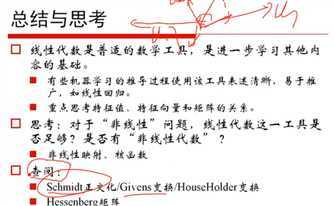 总结与思考
线性代数是普适的数学工具，是进一步学习其他内
容的基础。
有些机器学习的推导过程使用该工具表述清晰，易于推
广，如线性回归。
重点思考特征值、特征向量和矩阵的关系。
思考：对于“非线性”问题，线性代数这一工具是
否足够？是否有“非线性代数”？
非线性映射、核函数
查阅：
Schmidt正交化/Givens变换/HouseHolder变换
Hessenberg矩阵